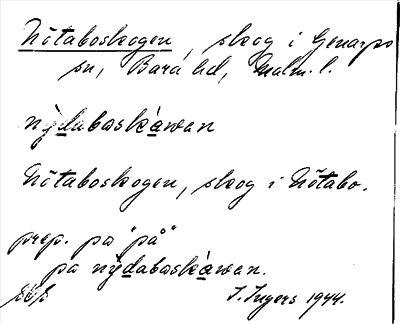 Nötaboskogen, skog i Genarps
sn, Bara hd, Malm. l.
nỳdabaskàwan
Nötaboskogen, skog i Nötabo.
prep. på "på"
på nỳdabaskàwan.
I. Ingers 1944.